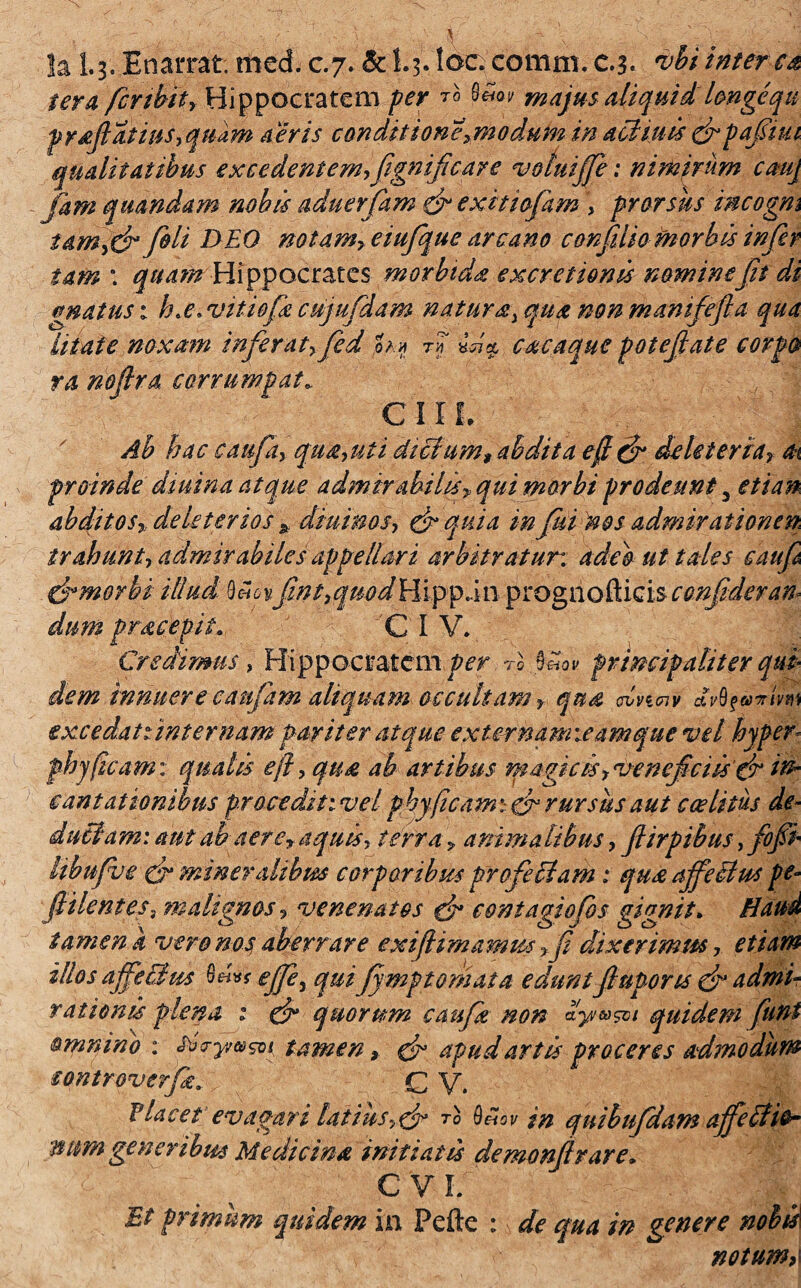 la l.3. Enarrat. med. c.7. & l.3. loc. comm. c.3. vbi inter ca
tera scribit, Hippocratem per τὸ θεῖον majus aliquid longéqu
præstātius, quàm aëris conditione, modum in actiuis & passiui
qualitatibus excedentem, significare voluisse: nimirùm cauſ
ſam quandam nobis aduersam & exitiosam, prorsùs incogni
tam, & soli DEO notam, eiusque arcano consilio morbis inser
tam: quam Hippocrates morbidæ excretionis nomine sit di
gnatus: h.e. vitiosæ cujusdam naturæ, quæ non manifesta qua
litate noxam inferat, sed ὅλῃ τῇ οὐσίᾳ cæcaque potestate corpo
ra nostra corrumpat.
CIII.
Ab hac causa, quæ, uti dictum, abdita est & deleteria, ac
proinde diuina atque admirabilis, qui morbi prodeunt, etiam
abditos, deleterios, diuinos, & quia in sui nos admirationem
trahunt, admirabiles appellari arbitratur: adeò ut tales causæ
& morbi illud θεῖον sint, quod Hipp. in prognosticis consideran-
dum præcepit. CIV.
Credimus, Hippocratem per τὸ θεῖον principaliter qui-
dem innuere causam aliquam occultam, quæ σύνεσιν ἀνθρωπίνην
excedat: internam pariter atque externam: eamque vel hyper-
physicam: qualis est, quæ ab artibus magicis, veneficiis & in-
cantationibus procedit: vel physicam: & rursùs aut cælitùs de-
ductam: aut ab aere, aquis, terra, animalibus, stirpibus, fossi-
libusve & mineralibus corporibus profectam: quæ affectus pe-
stilentes, malignos, venenatos & contagiosos gignit. Haud
tamen à vero nos aberrare existimamus, si dixerimus, etiam
illos affectus θείους esse, qui symptomata edunt stuporis & admi-
rationis plena: & quorum causæ non ἄγνωστοι quidem sunt
omnino: δύσγνωστοι tamen, & apud artis proceres admodùm
controversæ. CV.
Placet evagari latiùs, & τὸ θεῖον in quibusdam affectio-
num generibus Medicinæ initiatis demonstrare.
CVI.
Et primùm quidem in Peste: de qua in genere nobis
notum,